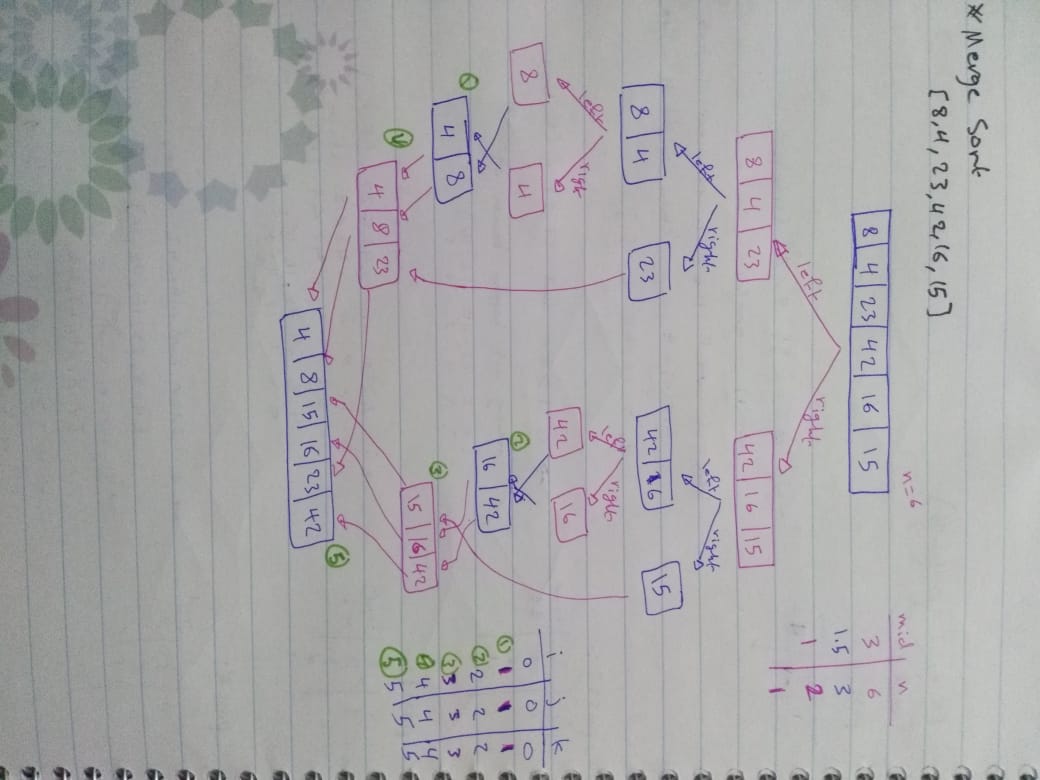 * Merge Sort
[8,4,23,42,16,15]
n=6
8 | 4 | 23 | 42 | 16 | 15
left right
8 | 4 | 23
42 | 16 | 15
mid n
3 6
1.5 3
1 2
1
left right
left right
8 | 4
23
42 | 16
15
left right
left right
8
4
42
16
① 4 | 8
② 16 | 42
4 | 8 | 23
③ 15 | 16 | 42
4 | 8 | 15 | 16 | 23 | 42
⑤
i j k
0 0 0
① 1 1 1
② 2 2 2
③ 3 3 3
④ 4 4 4
⑤ 5 5 5